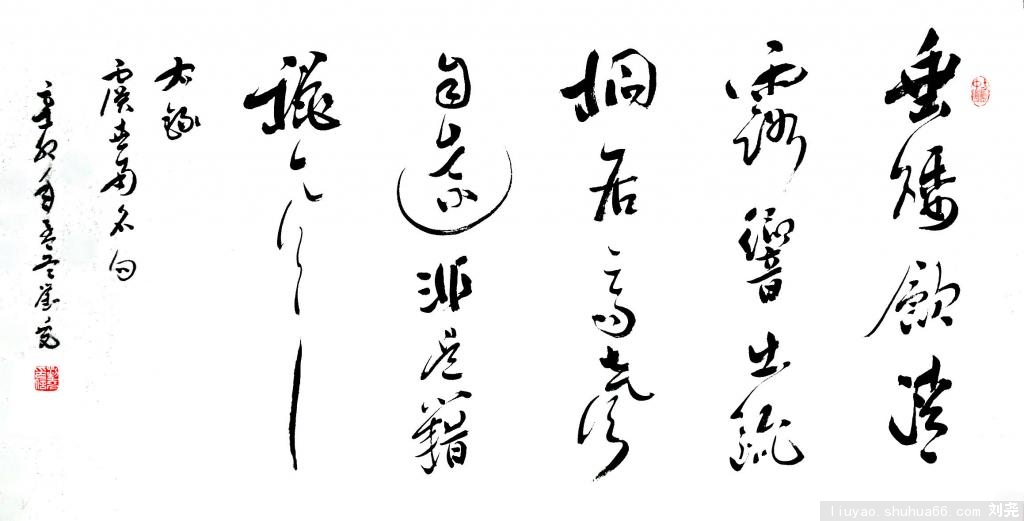 垂緌飲清
露響出疏
桐居高聲
自遠非是籍
右錄
虞世南名句
辛卯年劉堯
liuyao.shuhua66.com 刘尧